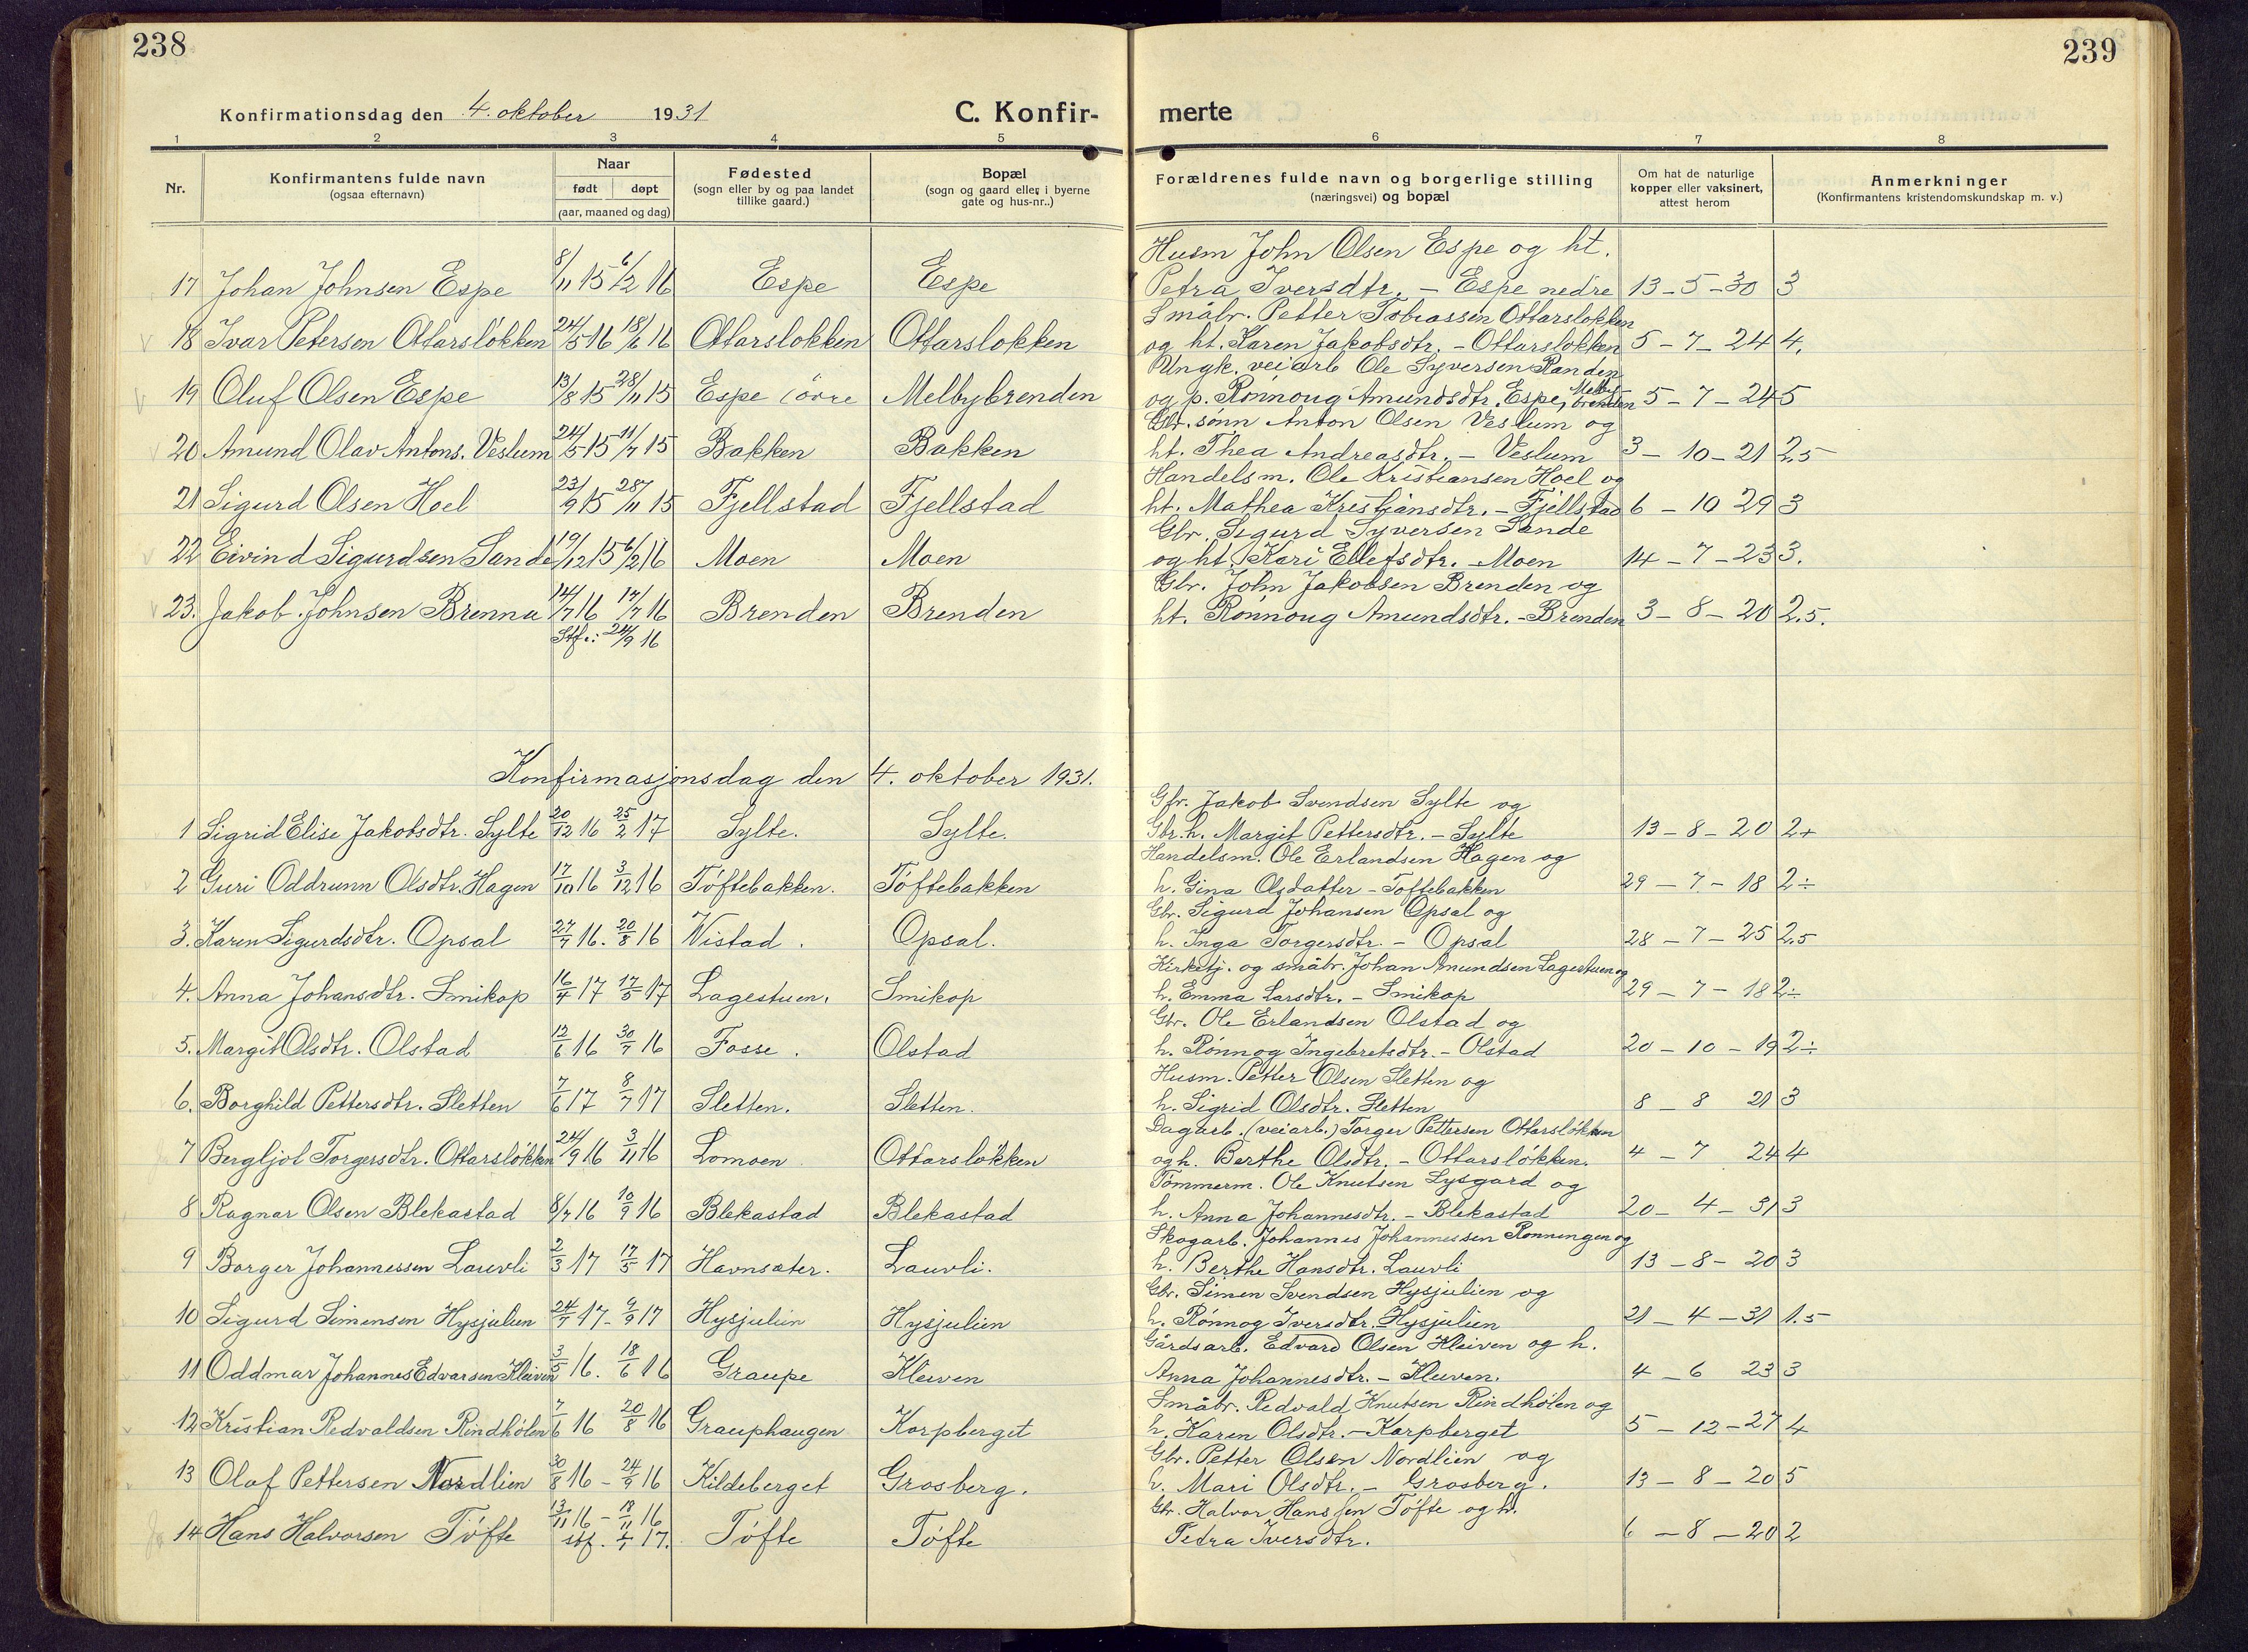 238
Konfirmationsdag den 4. oktober 1931
C. Konfir-
1 2 3 4 5
Nr.
Konfirmantens fulde navn
(ogsaa efternavn)
Naar
født døpt
(aar, maaned og dag)
Fødested
(sogn eller by og paa landet
tillike gaard.)
Bopæl
(sogn og gaard eller i byerne
gate og hus-nr..)
17 Johan Johnsen Espe 8/11 15 6/2 16 Espe Espe
18 Ivar Petersen Ottarsløkken 24/5 16 18/6 16 Ottarslokken Ottarslokken
19 Oluf Olsen Espe 13/8 15 28/11 15 Espe övre Melbybrenden
20 Amund Olav Antons. Veslum 24/5 15 11/7 15 Bakken Bakken
21 Sigurd Olsen Hoel 23/9 15 28/11 15 Fjellstad Fjellstad
22 Eivind Sigurdsen Sande 19/12 15 6/2 16 Moen Moen
23. Jakob Johnsen Brenna 14/7 16 14/7 16 Brenden Brenden
Stf.: 24/9 16
Konfirmasjonsdag den 4. oktober 1931.
1 Sigrid Elise Jakobsdtr. Sylte 20/12 16 25/2 17 Sylte. Sylte.
2 Guri Oddrunn Olsdtr. Hagen 17/10 16 3/12 16 Töftebakken. Töftebakken
3. Karen Sigurdsdtr. Opsal 27/7 16. 20/8 16 Vistad. Opsal.
4. Anna Johansdtr. Smikop 16/4 17 17/5 17 Lagestuen. Smikop
5. Margit Olsdtr. Olstad 12/6 16 30/7 16 Fosse. Olstad
6. Borghild Pettersdtr. Sletten 7/6 17 8/7 17 Sletten. Sletten.
7 Bergljot Torgersdtr. Ottarsløkken 24/9 16 3/11 16 Lomoen Ottarsløkken
8 Ragnar Olsen Blekastad 8/7 16 10/9 16 Blekastad Blekastad
9 Borger Johannessen Lauvli 2/3 17 17/5 17 Havnsæter. Lauvli.
10 Sigurd Simensen Hysjulien 24/7 17- 9/9 17 Hysjulien Hysjulien
11 Oddmar Johannes Edvarsen Kleiven 3/5 16. 18/6 16 Graupe Kleiven
12 Kristian Redvaldsen Rindhölen 7/6 16 20/8 16 Grauphaugen Korpberget
13 Olaf Pettersen Nordlien 30/8 16 - 24/9 16 Kildeberget Grosberg.
14 Hans Halvorsen Töfte 13/11 16 - 18/11 16 Töfte Töfte
stf. 17.
239
merte
6 7 8
Forældrenes fulde navn og borgerlige stilling
(næringsvei) og bopæl
Om hat de naturlige
kopper eller vaksinert,
attest herom
Anmerkninger
(Konfirmantens kristendomskundskap m. v.)
Husm John Olsen Espe og ht.
Petra Iversdtr. - Espe nedre 13-5-30 3
Småbr. Petter Tobiassen Ottarslokken
og ht. Karen Jakobsdtr. - Ottarslokken 5-7-24 4.
Ungk. veiarb Ole Syversen Randen
og p. Rönnoug Amundsdtr. Espe, Melbybrenden 5-7-24 5
Gbr. sönn Anton Olsen Veslum og
ht. Thea Andreasdtr. - Veslum 3-10-21 2,5
Handelsm. Ole Kristiansen Hoel og
ht. Mathea Kristjansdtr. - Fjellstad 6-10 29 3
Gbr. Sigurd Syversen Sande
og ht. Kari Ellefsdtr. - Moen 14-7-23 3.
Gbr. John Jakobsen Brenden og
ht. Rönnoug Amundsdtr. - Brenden 3-8-20 2.5.
Gfr. Jakob Svendsen Sylte og
Gbr. h. Margit Pettersdtr. - Sylte 13-8-20 2+
Handelsm. Ole Erlandsen Hagen og
h. Gina Olsdatter - Toftebakken 29-7-18 2÷
Gbr. Sigurd Johansen Opsal og
h. Inga Torgersdtr. - Opsal 28-7-25 2,5
Kirketj. og småbr. Johan Amundsen Lagestuen og
h. Emma Larsdtr. - Smikop 29-7-18 2÷
Gbr. Ole Erlandsen Olstad og
h. Rönnog Ingebretsdtr. - Olstad 20-10-19 2÷
Husm. Petter Olsen Sletten og
h. Sigrid Olsdtr. Sletten 8-8 21 3
Dagarb. (veiarb.) Torger Pettersen Ottarsløkken
og h. Berthe Olsdtr. - Ottarslökken. 4-7 24 4
Tömmerm. Ole Knutsen Lysgard og
h. Anna Johannesdtr. - Blekastad 20-4-31 3
Skogarb. Johannes Johannessen Rönningen og
h. Berthe Hansdtr. Lauvli 13-8-20 3
Gbr. Simen Svendsen Hysjulien og
h. Rönnog Iversdtr. Hysjulien 21-4-31 1.5
Gårdsarb. Edvard Olsen Kleiven og h.
Anna Johannesdtr. - Kleiven. 4-6 23 3
Småbr. Redvald Knutsen Rindhölen og
h. Karen Olsdtr. - Korpberget 5-12-27 4
Gbr. Petter Olsen Nordlien og
h. Mari Olsdtr. - Grosberg. 13-8-20 5
Gbr. Halvor Hanssen Töfte og h.
Petra Iversdtr. 6-8-20 2